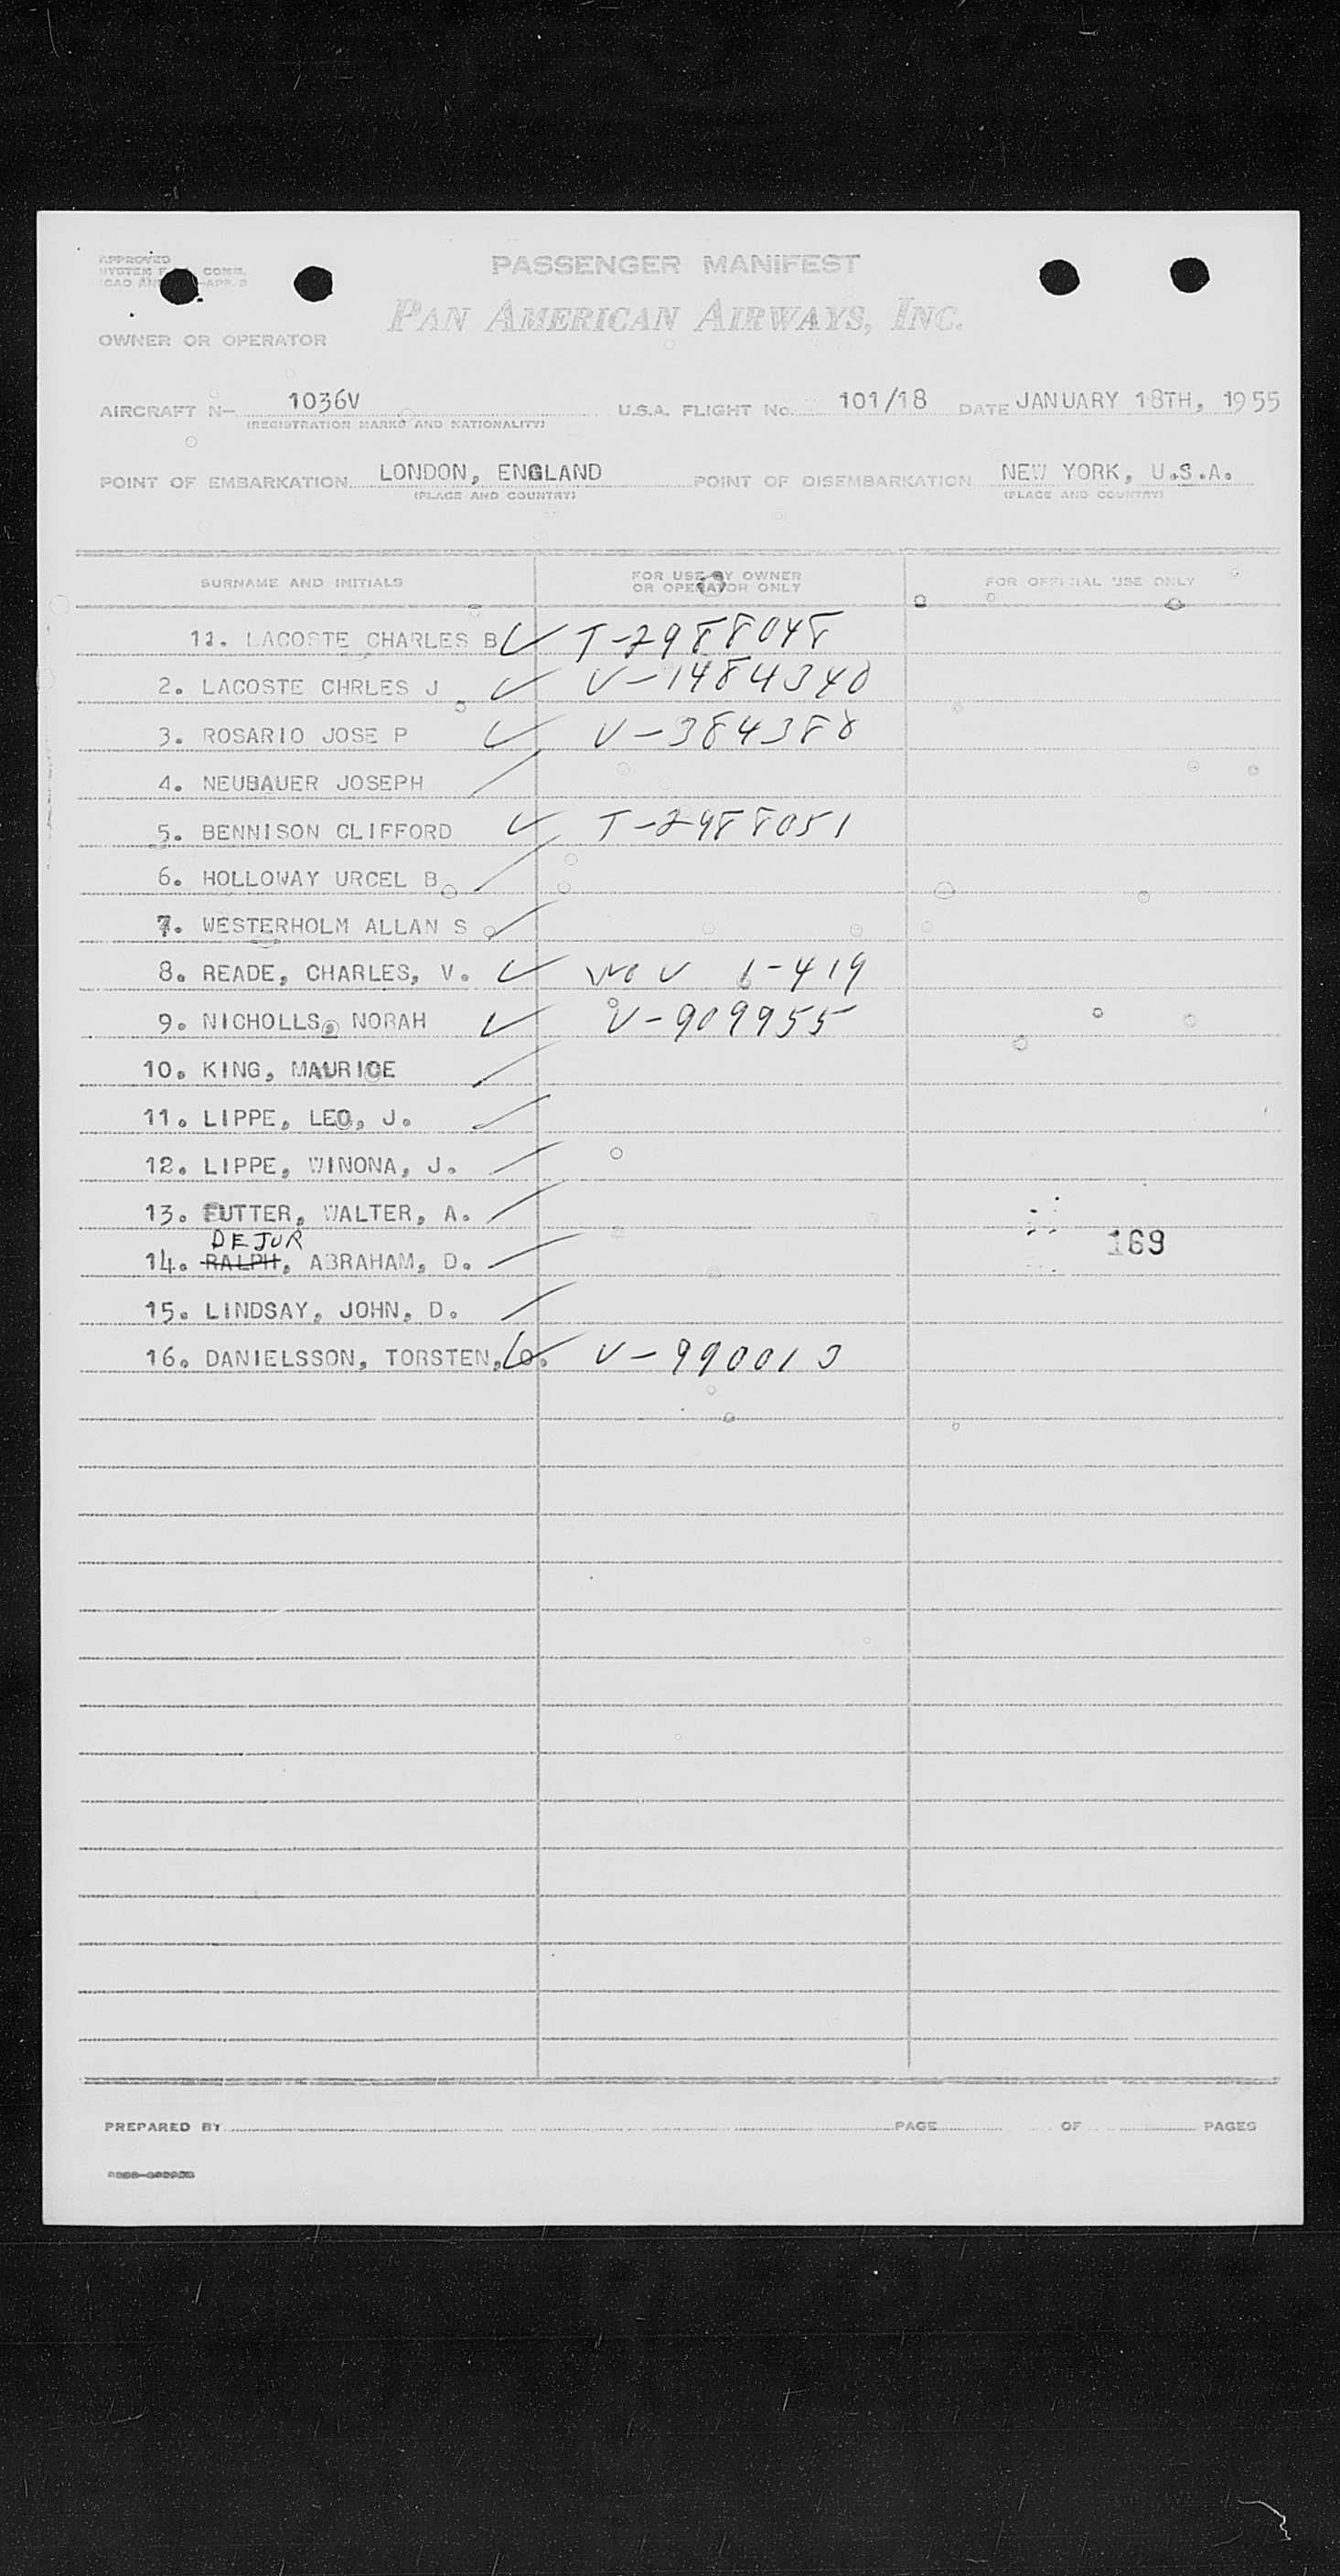 APPROVED
PASSENGER MANIFEST
PAN AMERICAN AIRWAYS, INC.
OWNER OR OPERATOR
AIRCRAFT N- 1036V U.S.A. FLIGHT No. 101/18 DATE JANUARY 18TH, 1955
(REGISTRATION MARKS AND NATIONALITY)
POINT OF EMBARKATION LONDON, ENGLAND POINT OF DISEMBARKATION NEW YORK, U.S.A.
(PLACE AND COUNTRY) (PLACE AND COUNTRY)
SURNAME AND INITIALS FOR USE BY OWNER OR OPERATOR ONLY FOR OFFICIAL USE ONLY
11. LACOSTE CHARLES B T-2988048
2. LACOSTE CHRLES J V-1484340
3. ROSARIO JOSE P V-384388
4. NEUBAUER JOSEPH
5. BENNISON CLIFFORD T-2988051
6. HOLLOWAY URCEL B
7. WESTERHOLM ALLAN S
8. READE, CHARLES, V. V 1-419
9. NICHOLLS, NORAH V-909955
10. KING, MAURICE
11. LIPPE, LEO, J.
12. LIPPE, WINONA, J.
13. FUTTER, WALTER, A.
DEJUR
14. RALPH, ABRAHAM, D. 169
15. LINDSAY, JOHN, D.
16. DANIELSSON, TORSTEN, O. V-990013
PREPARED BY PAGE OF PAGES